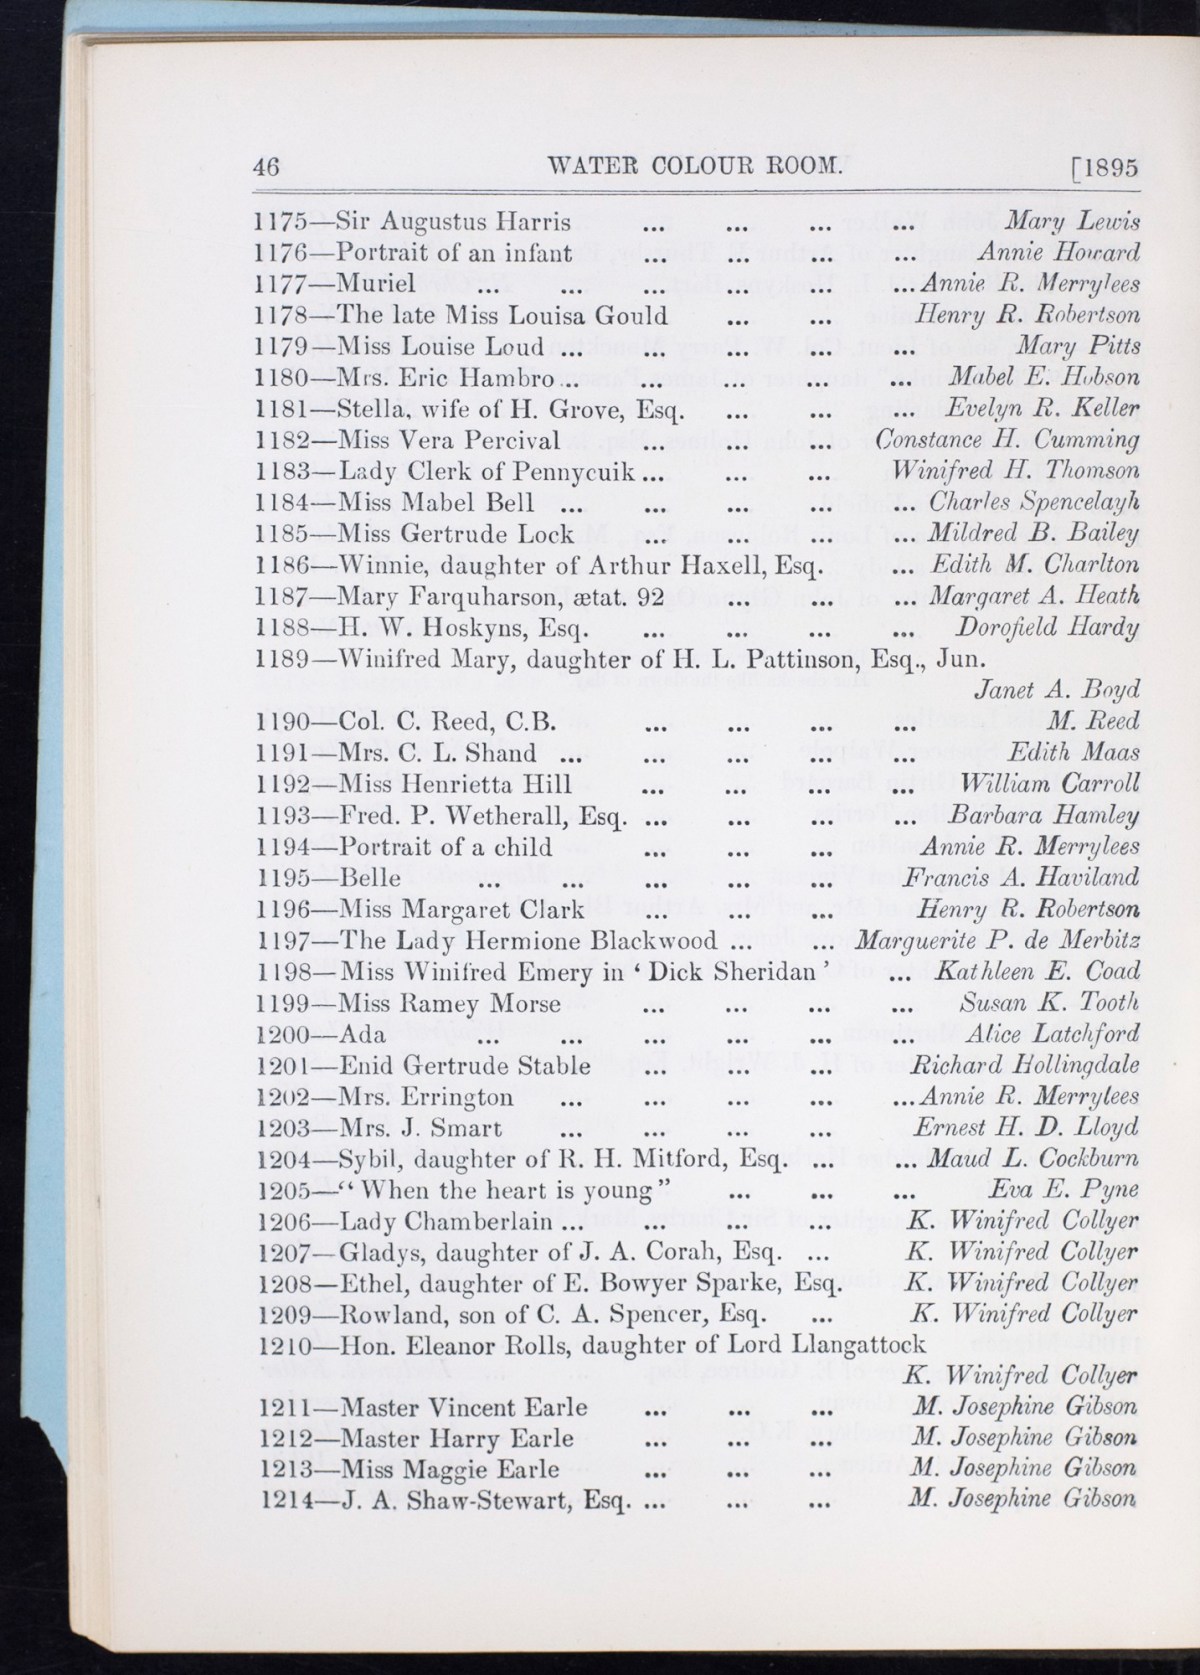 46 WATER COLOUR ROOM. [1895
1175—Sir Augustus Harris ... ... ... ... Mary Lewis
1176—Portrait of an infant ... ... ... ... Annie Howard
1177—Muriel ... ... ... ... ... ... Annie R. Merrylees
1178—The late Miss Louisa Gould ... ... Henry R. Robertson
1179—Miss Louise Loud ... ... ... ... ... Mary Pitts
1180—Mrs. Eric Hambro ... ... ... ... ... Mabel E. Hobson
1181—Stella, wife of H. Grove, Esq. ... ... ... Evelyn R. Keller
1182—Miss Vera Percival ... ... ... Constance H. Cumming
1183—Lady Clerk of Pennycuik ... ... ... Winifred H. Thomson
1184—Miss Mabel Bell ... ... ... ... ... Charles Spencelayh
1185—Miss Gertrude Lock ... ... ... ... Mildred B. Bailey
1186—Winnie, daughter of Arthur Haxell, Esq. ... Edith M. Charlton
1187—Mary Farquharson, ætat. 92 ... ... ... Margaret A. Heath
1188—H. W. Hoskyns, Esq. ... ... ... ... Dorofield Hardy
1189—Winifred Mary, daughter of H. L. Pattinson, Esq., Jun.
Janet A. Boyd
1190—Col. C. Reed, C.B. ... ... ... ... M. Reed
1191—Mrs. C. L. Shand ... ... ... ... ... Edith Maas
1192—Miss Henrietta Hill ... ... ... ... William Carroll
1193—Fred. P. Wetherall, Esq. ... ... ... ... Barbara Hamley
1194—Portrait of a child ... ... ... Annie R. Merrylees
1195—Belle ... ... ... ... ... Francis A. Haviland
1196—Miss Margaret Clark ... ... ... Henry R. Robertson
1197—The Lady Hermione Blackwood ... ... Marguerite P. de Merbitz
1198—Miss Winifred Emery in ‘ Dick Sheridan ’ ... Kathleen E. Coad
1199—Miss Ramey Morse ... ... ... ... Susan K. Tooth
1200—Ada ... ... ... ... ... ... Alice Latchford
1201—Enid Gertrude Stable ... ... ... Richard Hollingdale
1202—Mrs. Errington ... ... ... ... ... Annie R. Merrylees
1203—Mrs. J. Smart ... ... ... ... Ernest H. D. Lloyd
1204—Sybil, daughter of R. H. Mitford, Esq. ... ... Maud L. Cockburn
1205—“ When the heart is young ” ... ... ... Eva E. Pyne
1206—Lady Chamberlain ... ... ... ... K. Winifred Collyer
1207—Gladys, daughter of J. A. Corah, Esq. ... K. Winifred Collyer
1208—Ethel, daughter of E. Bowyer Sparke, Esq. K. Winifred Collyer
1209—Rowland, son of C. A. Spencer, Esq. ... K. Winifred Collyer
1210—Hon. Eleanor Rolls, daughter of Lord Llangattock
K. Winifred Collyer
1211—Master Vincent Earle ... ... ... M. Josephine Gibson
1212—Master Harry Earle ... ... ... M. Josephine Gibson
1213—Miss Maggie Earle ... ... ... M. Josephine Gibson
1214—J. A. Shaw-Stewart, Esq. ... ... ... M. Josephine Gibson